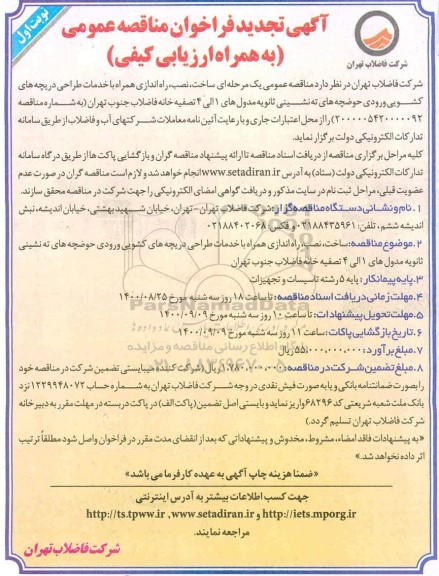 نوبت اول
آگهی تجدید فراخوان مناقصه عمومی
(به همراه ارزیابی کیفی)
شرکت فاضلاب تهران
شرکت فاضلاب تهران در نظر دارد مناقصه عمومی یک مرحله ای ساخت، نصب، راه اندازی همراه با خدمات طراحی دریچه های
کشویی ورودی حوضچه های ته نشینی ثانویه مدول های 1 الی 4 تصفیه خانه فاضلاب جنوب تهران (به شماره مناقصه
2000005420000092) را از محل اعتبارات جاری و با رعایت آئین نامه معاملات شرکتهای آب و فاضلاب از طریق سامانه
تدارکات الکترونیکی دولت برگزار نماید.
کلیه مراحل برگزاری مناقصه از دریافت اسناد مناقصه تا ارائه پیشنهاد مناقصه گران و بازگشایی پاکت ها از طریق درگاه سامانه
تدارکات الکترونیکی دولت (ستاد) به آدرس www.setadiran.ir انجام خواهد شد و لازم است مناقصه گران در صورت عدم
عضویت قبلی، مراحل ثبت نام در سایت مذکور و دریافت گواهی امضای الکترونیکی را جهت شرکت در مناقصه محقق سازند.
1. نام و نشانی دستگاه مناقصه گزار: شرکت فاضلاب تهران - تهران، خیابان شهید بهشتی، خیابان اندیشه، نبش
اندیشه ششم، تلفن: 02188435961 و فکس: 02188402068
2. موضوع مناقصه: ساخت، نصب، راه اندازی همراه با خدمات طراحی دریچه های کشویی ورودی حوضچه های ته نشینی
ثانویه مدول های 1 الی 4 تصفیه خانه فاضلاب جنوب تهران
3. پایه پیمانکار: پایه 5 رشته تاسیسات و تجهیزات
4. مهلت زمانی دریافت اسناد مناقصه: تا ساعت 18 روز سه شنبه مورخ 1400/08/25
5. مهلت تحویل پیشنهادات: تا ساعت 10 روز سه شنبه مورخ 1400/09/09
6. تاریخ بازگشایی پاکات: ساعت 11 روز سه شنبه مورخ 1400/09/09
7. مبلغ برآورد: 55,000,000,000 ریال
8. مبلغ تضمین شرکت در مناقصه: 1,780,000,000 ریال (شرکت کننده میبایستی تضمین شرکت در مناقصه خود
را بصورت ضمانتنامه بانکی و یا به صورت فیش نقدی در وجه شرکت فاضلاب تهران به شماره حساب 1229948072 نزد
بانک ملت شعبه شریعتی کد 68296 واریز نماید و بایستی اصل تضمین (پاکت الف) در پاکت دربسته در مهلت مقرر به دبیرخانه
شرکت فاضلاب تهران تسلیم گردد.)
«به پیشنهادات فاقد امضاء، مشروط، مخدوش و پیشنهاداتی که بعد از انقضای مدت مقرر در فراخوان واصل شود مطلقاً ترتیب
اثر داده نخواهد شد.»
«ضمنا هزینه چاپ آگهی به عهده کارفرما می باشد»
جهت کسب اطلاعات بیشتر به آدرس اینترنتی
http://iets.mporg.ir و www.setadiran.ir , http://ts.tpww.ir
مراجعه نمایند.
شرکت فاضلاب تهران